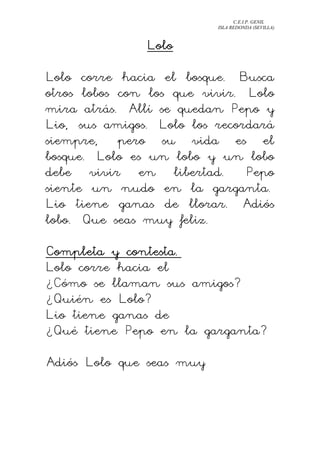 C.E.I.P. GENIL
ISLA REDONDA (SEVILLA)
Lolo
Lolo corre hacia el bosque. Busca
otros lobos con los que vivir. Lolo
mira atrás. Allí se quedan Pepo y
Lío, sus amigos. Lolo los recordará
siempre, pero su vida es el
bosque. Lolo es un lobo y un lobo
debe vivir en libertad. Pepo
siente un nudo en la garganta.
Lío tiene ganas de llorar. Adiós
lobo. Que seas muy feliz.
Completa y contesta.
Lolo corre hacia el
¿Cómo se llaman sus amigos?
¿Quién es Lolo?
Lío tiene ganas de
¿Qué tiene Pepo en la garganta?
Adiós Lolo que seas muy